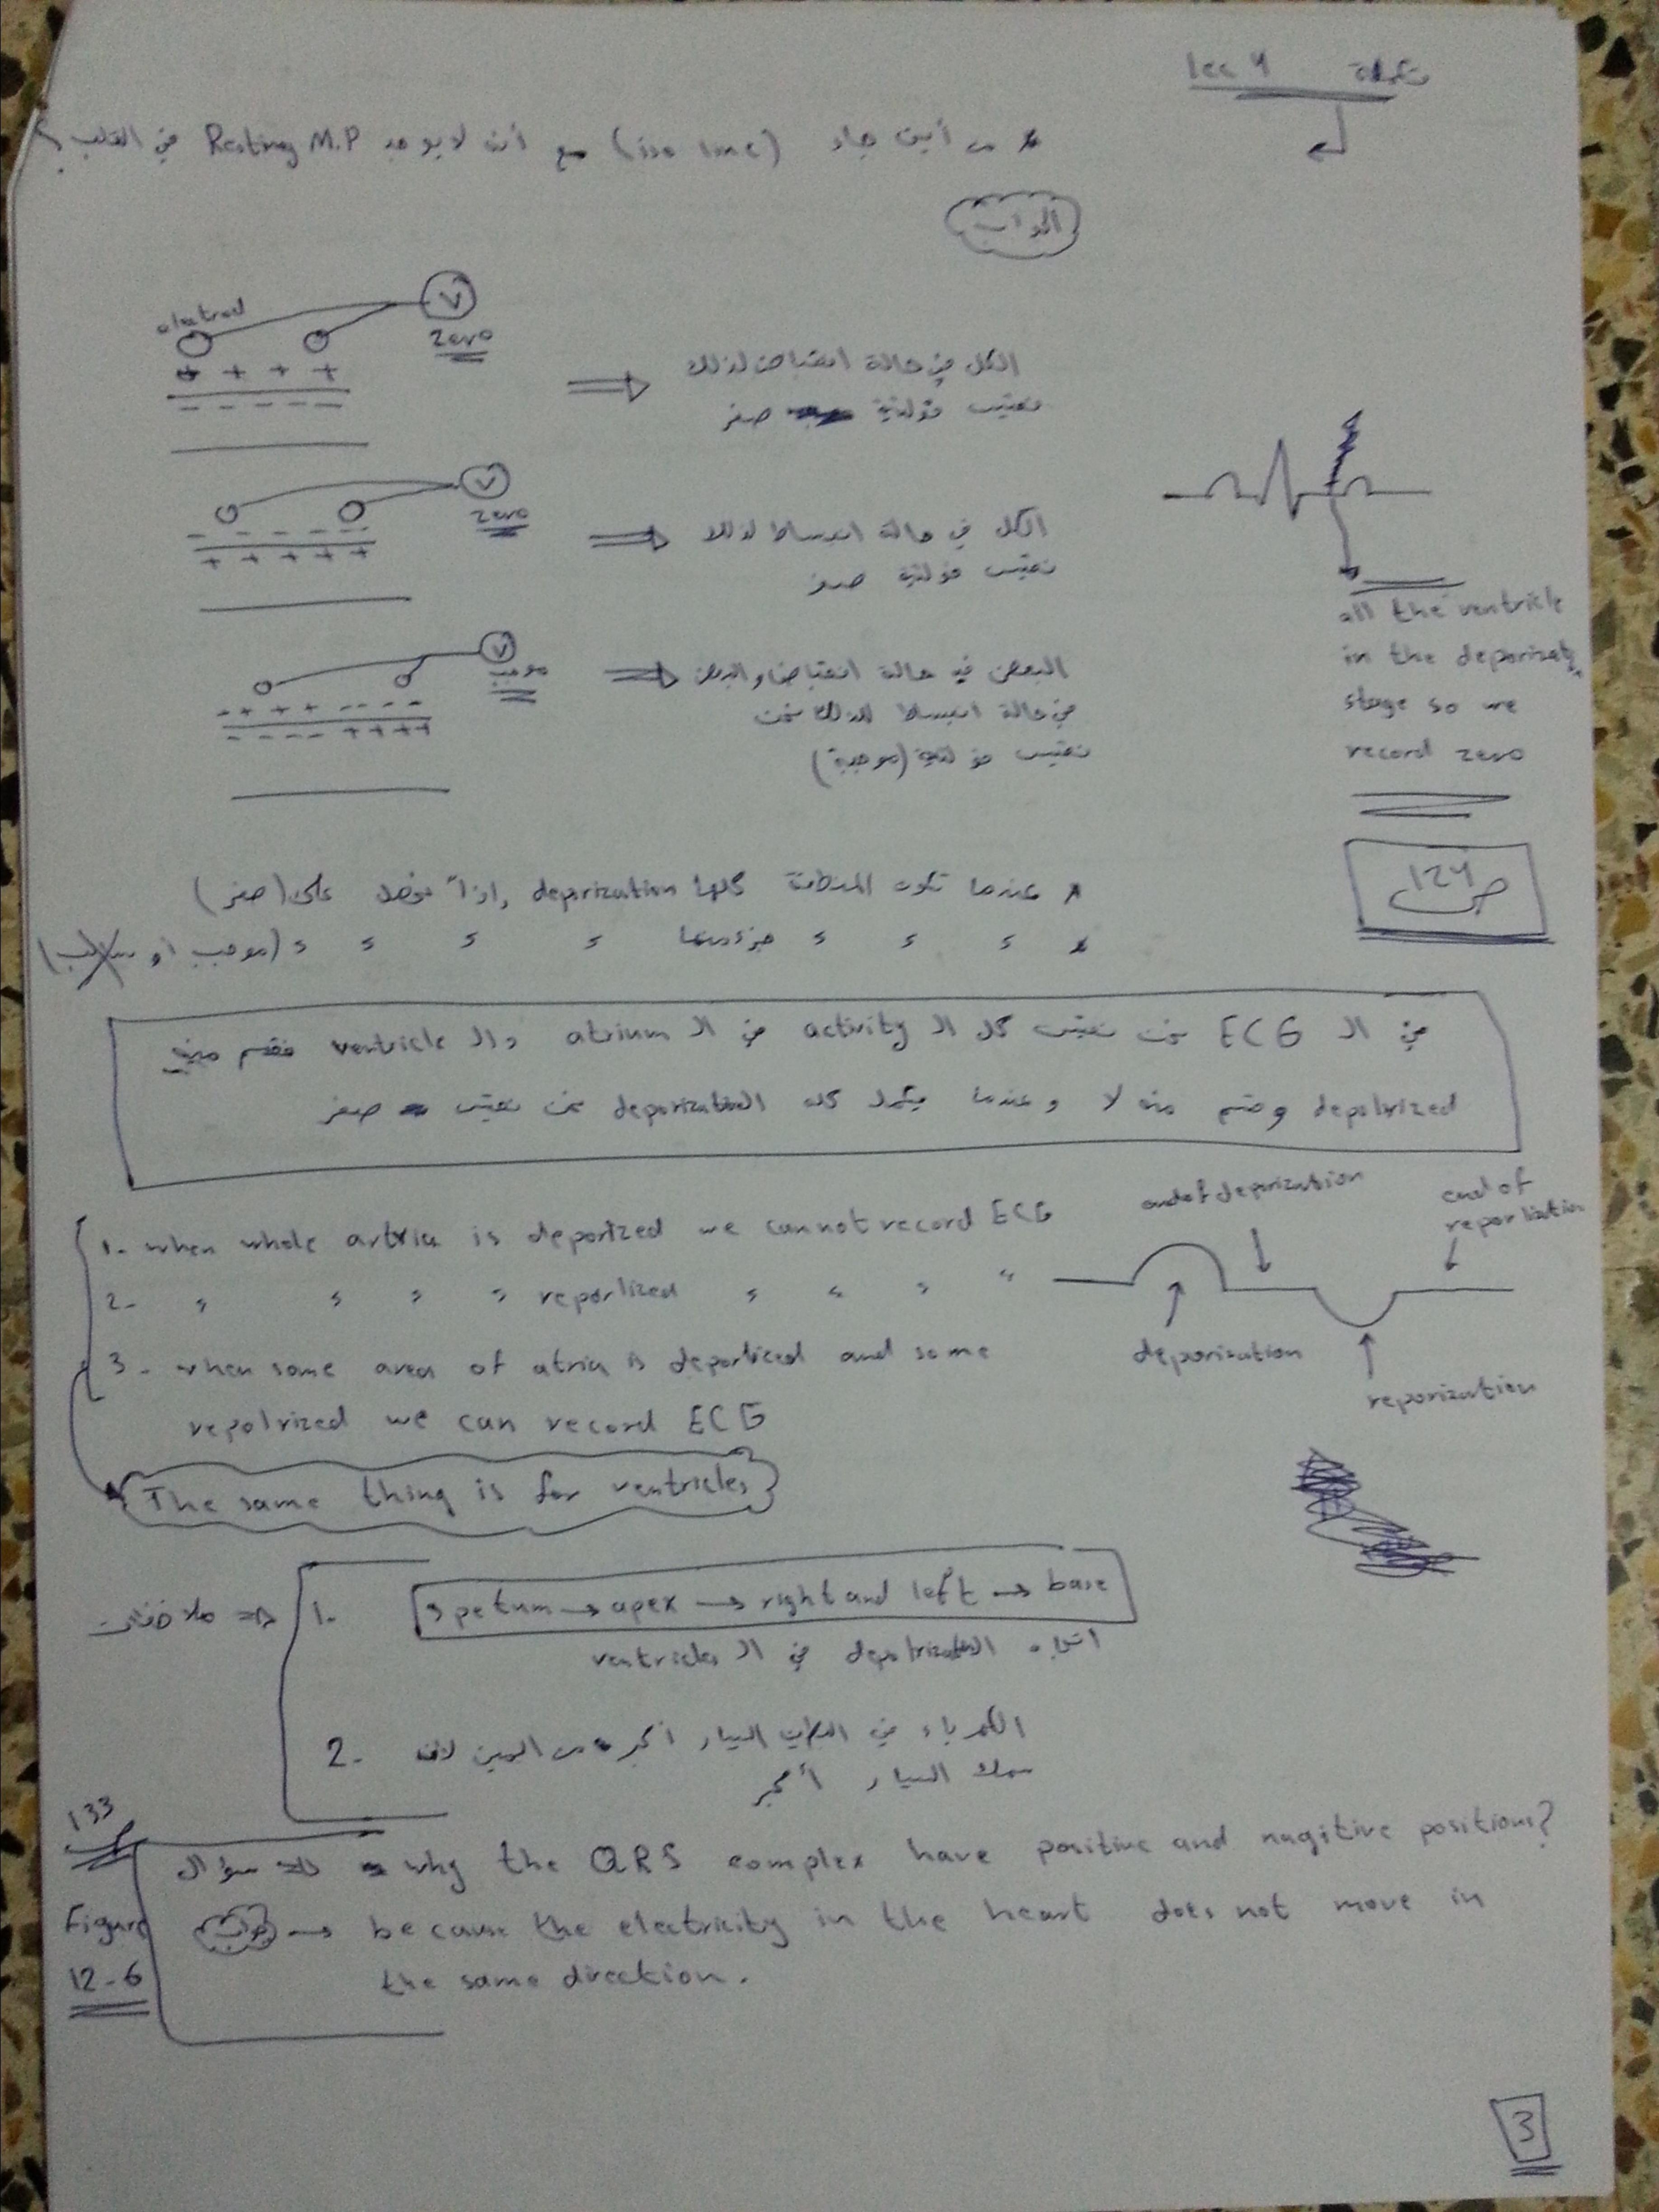 تكملة lec 4
* من أين جاء (iso line) مع أنه لا يوجد Resting M.P في القلب؟
الجواب
electrod
V
zero
+ + + +
- - - - -
الكل في حالة انقباض لذلك
نقيس فولتية صفر
V
zero
- - - - -
+ + + + +
الكل في حالة انبساط لذلك
نقيس فولتية صفر
all the ventricle
in the deporizat
stage so we
record zero
V
موجب
- + + + - - - -
- - - - + + + +
البعض في حالة انقباض والبعض
في حالة انبساط لذلك نحن
نقيس فولتية (موجبة)
ص 124
* عندما تكون المنطقة كلها deprization ,اذاً نحصل على (صفر)
* " " " جزء منها " " " " " (موجب او سالب)
في الـ ECG نحن نقيس كل الـ activity في الـ atrium والـ ventricle فقسم منه
depolrized وقسم منه لا وعندما يكمل كله الـ deporization نحن نقيس صفر
1- when whole artria is deporized we cannot record ECG
2- " " " " reporlized " " " "
3- when some area of atria is deporlized and some
repolrized we can record ECG
end of deporization
end of
reporlization
deporization
reporization
The same thing is for ventricles
ملاحظات
1. spetum → apex → right and left → base
اتجاه الـ depolrization في الـ ventricles
2- الكهرباء في البطين اليسار اكبر من اليمين لان
سمك اليسار أكبر
133
Figure
12-6
سؤال why the QRS complex have positive and nagitive positions?
جواب → because the electricity in the heart does not move in
the same direction.
3